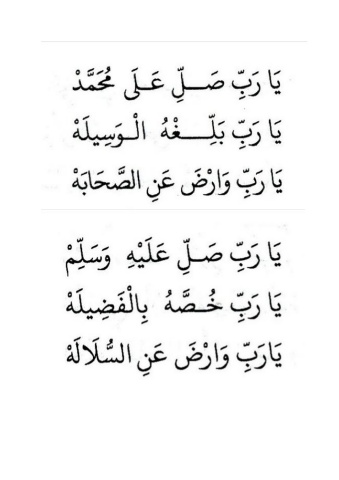 يَا رَبِّ صَـــلِّ عَـلَى مُحَمَّدْ
يَا رَبِّ بَلِّـــــغْهُ الْـوَسِيلَهْ
يَا رَبِّ وَارْضَ عَنِ الصَّحَابَهْ
يَا رَبِّ صَـلِّ عَلَيْهِ وَسَلِّمْ
يَا رَبِّ خُـصَّهُ بِالْفَضِيلَهْ
يَارَبِّ وَارْضَ عَنِ السُّلَالَهْ